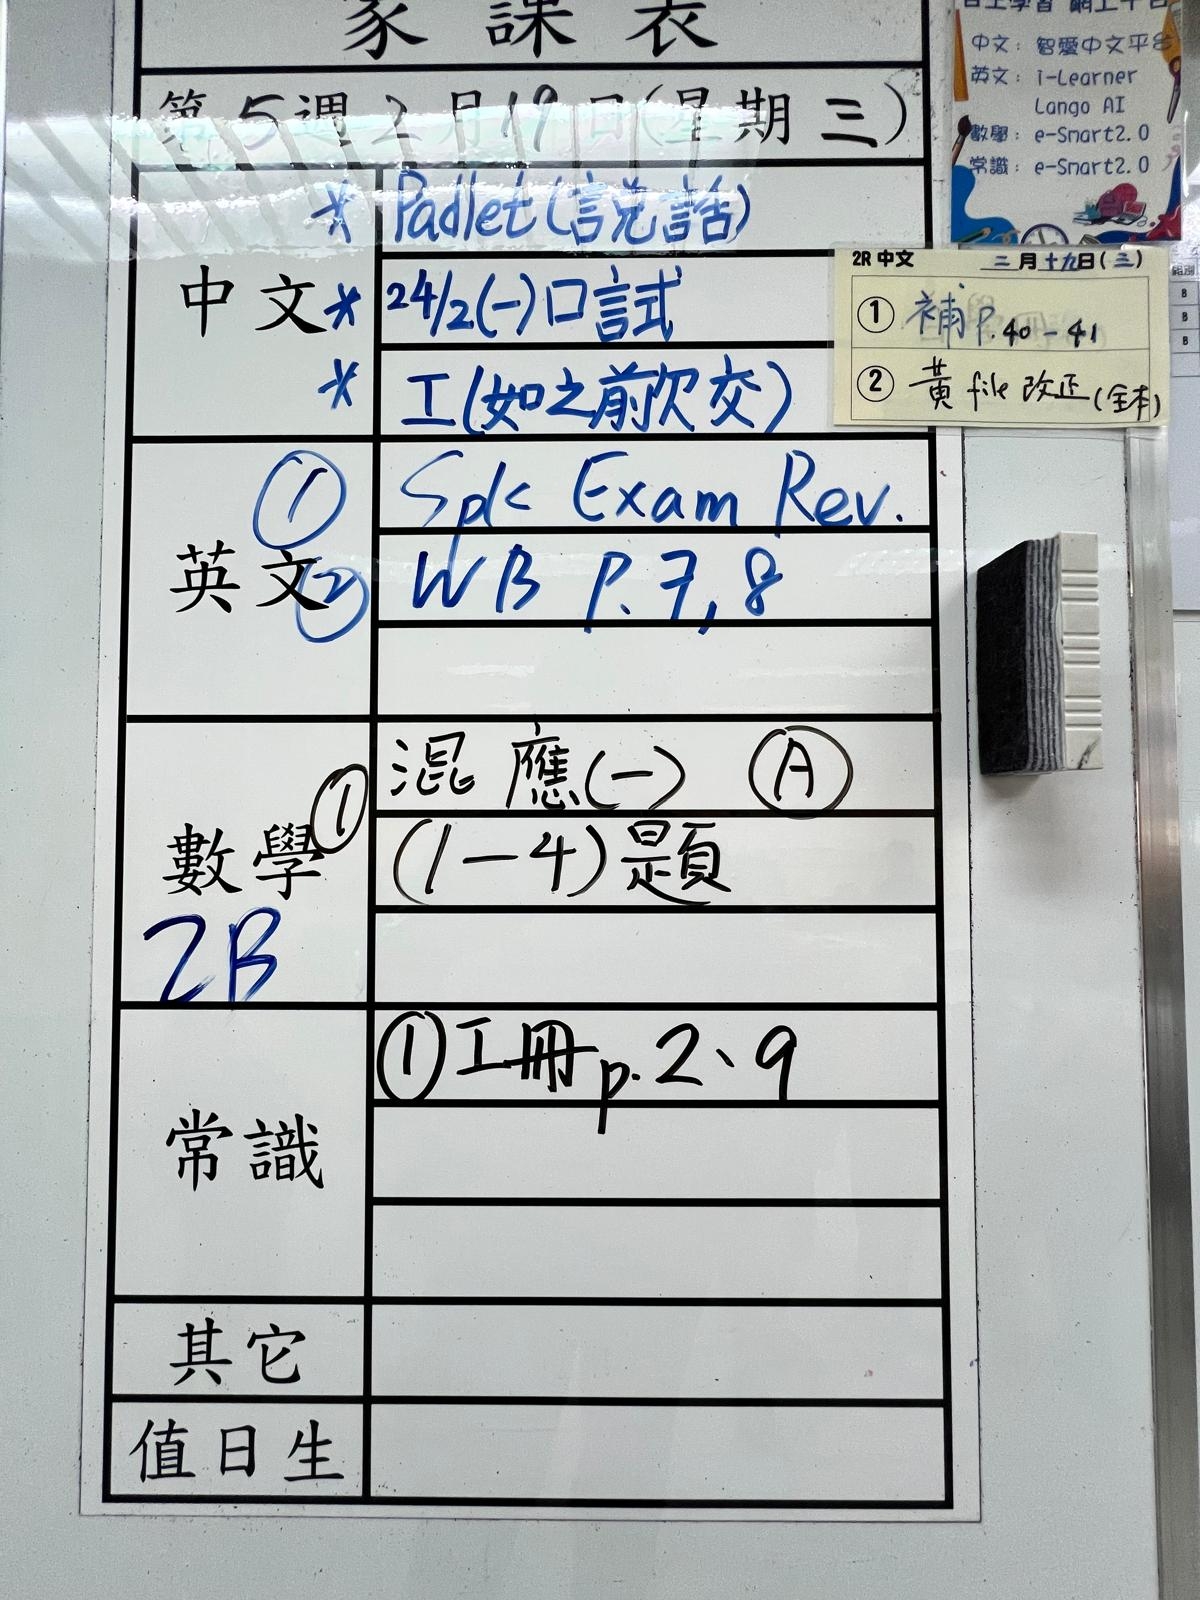 家課表
第5週2月19日(星期三)
中文
* Padlet(說話)
* 24/2(一)口試
* 工(如之前欠交)
英文
① Spk Exam Rev.
② WB P.7,8
數學
2B
① 混應(一) Ⓐ
(1-4)題
常識
①工冊p.2、9
其它
值日生
自主學習 網上平台
中文: 智愛中文平台
英文: i-Learner
Lango AI
數學: e-Smart2.0
常識: e-Smart2.0
2R中文 二月十九日(三)
① 補p.40-41
② 黃file改正(全本)
組別
B
B
B